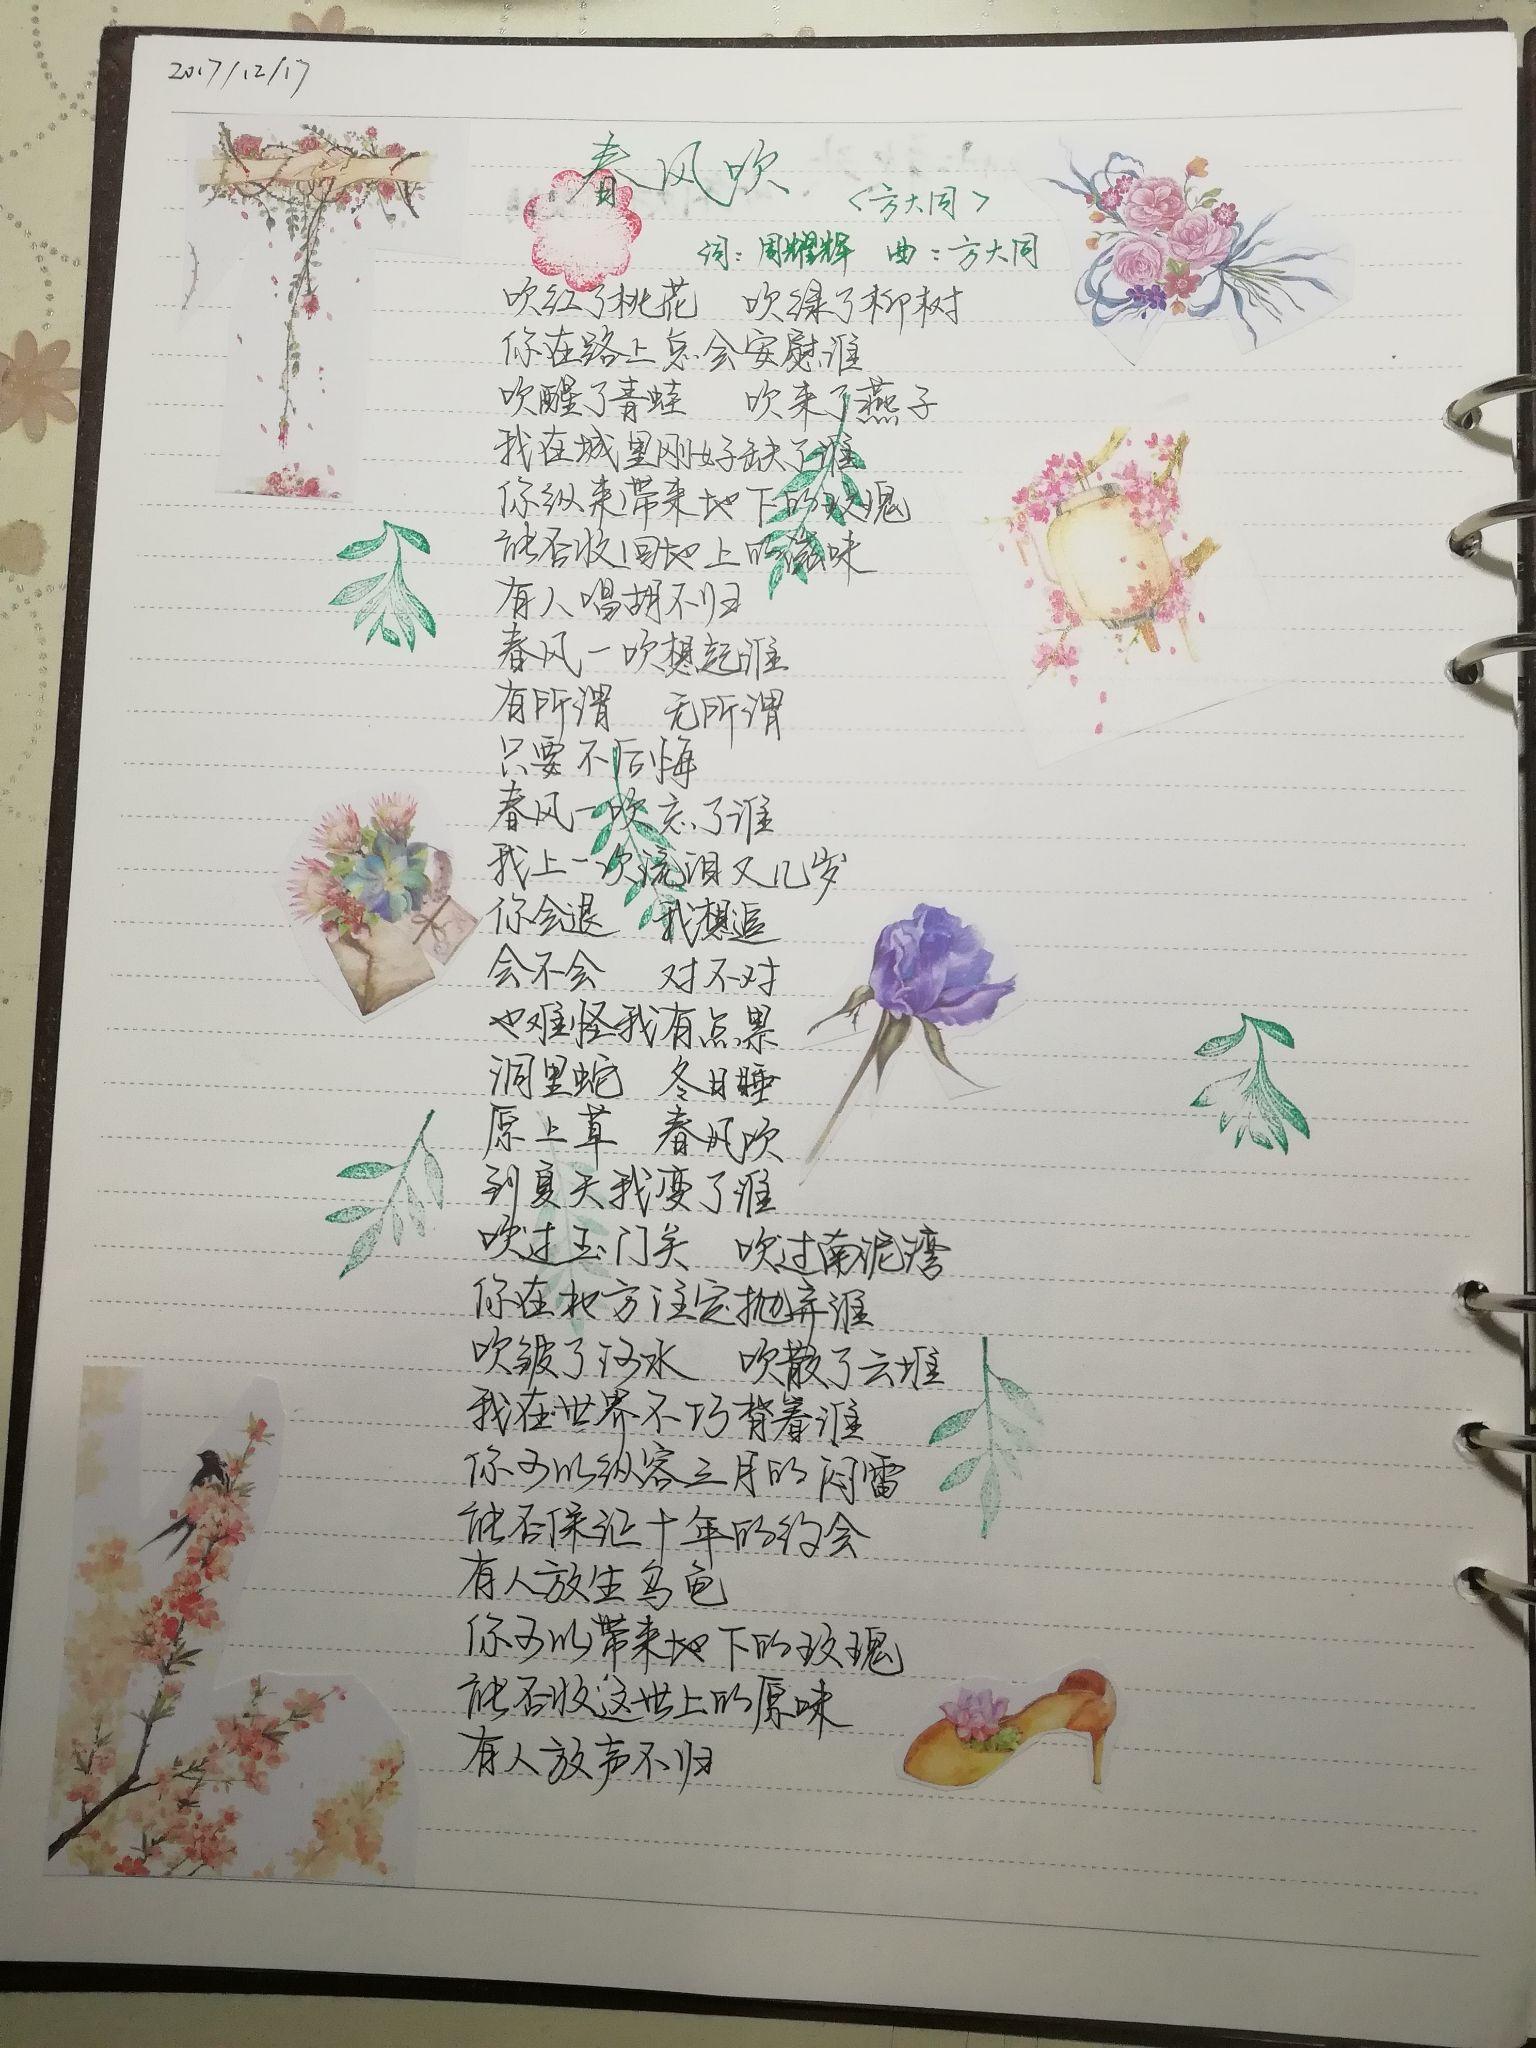 2017/12/17
春风吹
<方大同>
词：周耀辉 曲：方大同
吹红了桃花 吹绿了柳树
你在路上总会安慰谁
吹醒了青蛙 吹来了燕子
我在城里刚好缺了谁
你纵来带来地下的玫瑰
能否收回地上的滋味
有人唱胡不归
春风一吹想起谁
有所谓 无所谓
只要不后悔
春风一吹忘了谁
我上一次流泪又几岁
你会退 我想追
会不会 对不对
也难怪我有点累
洞里蛇 冬日睡
原上草 春风吹
到夏天我变了谁
吹过玉门关 吹过南泥湾
你在地方注定抛弃谁
吹皱了洛水 吹散了云堆
我在世界不巧背着谁
你可以纵容三月的闷雷
能否保证十年的约会
有人放生乌龟
你可以带来地下的玫瑰
能否收这世上的原味
有人放声不归